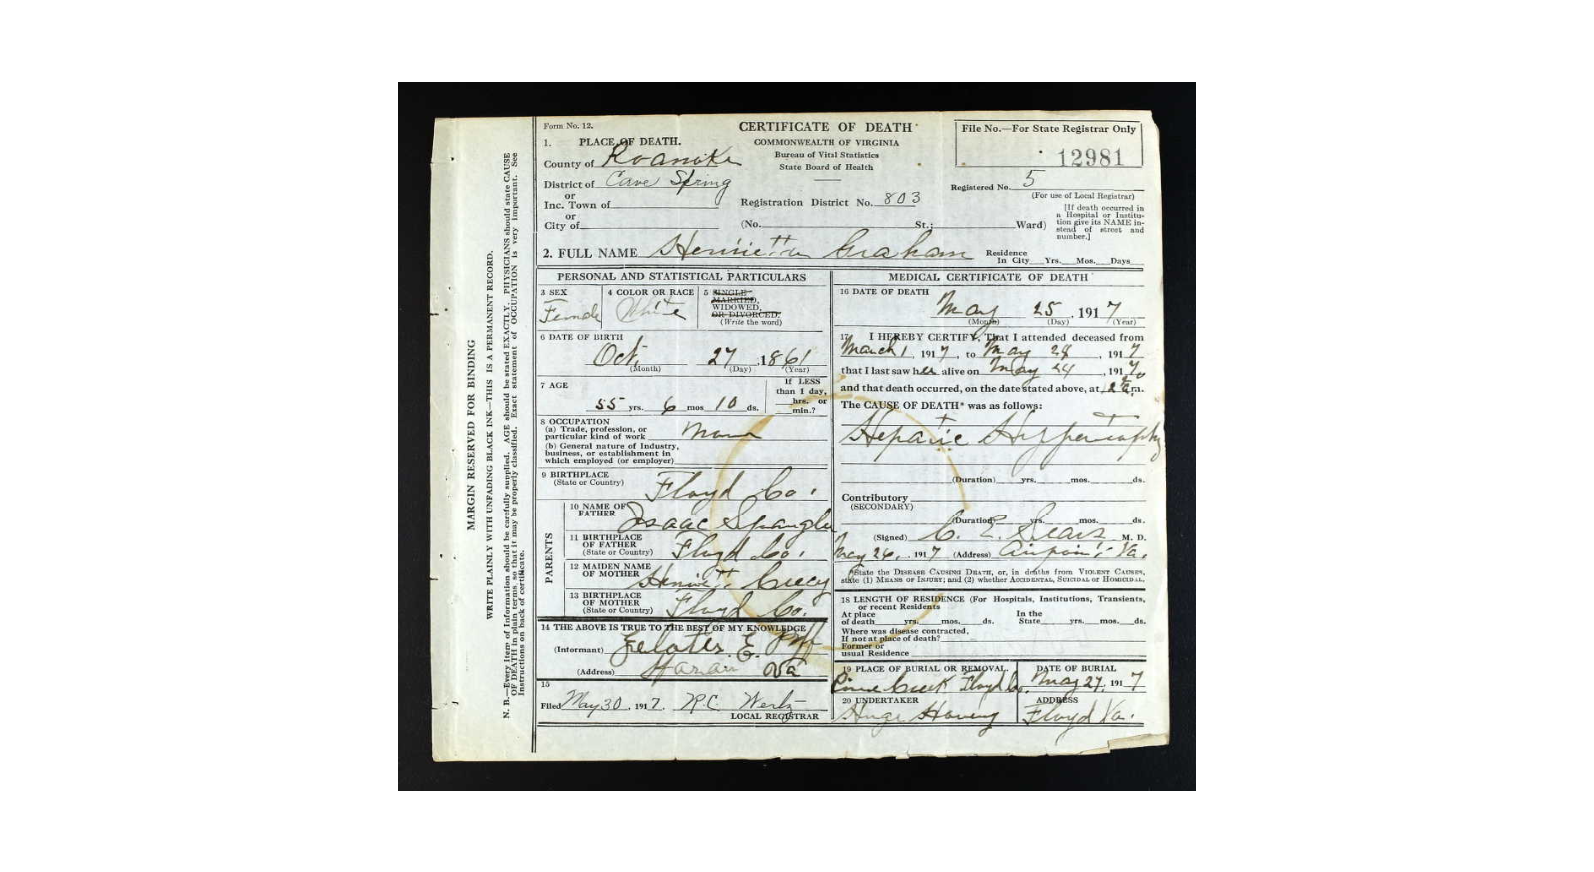 MARGIN RESERVED FOR BINDING
WRITE PLAINLY WITH UNFADING BLACK INK—THIS IS A PERMANENT RECORD.
N. B.—Every item of information should be carefully supplied. AGE should be stated EXACTLY. PHYSICIANS should state CAUSE
OF DEATH in plain terms, so that it may be properly classified. Exact statement of OCCUPATION is very important. See
Instructions on back of certificate.
Form No. 12.
CERTIFICATE OF DEATH
COMMONWEALTH OF VIRGINIA
Bureau of Vital Statistics
State Board of Health
File No.—For State Registrar Only
12981
1. PLACE OF DEATH.
County of Roanoke
District of Cave Spring
or
Inc. Town of
or
City of
Registration District No. 803
Registered No. 5
(For use of Local Registrar)
(No. St.; Ward)
[If death occurred in
a Hospital or Institu-
tion give its NAME in-
stead of street and
number.]
2. FULL NAME Henrietta Graham
Residence
In City Yrs. Mos. Days
PERSONAL AND STATISTICAL PARTICULARS
3 SEX
Female
4 COLOR OR RACE
White
5 SINGLE
MARRIED,
WIDOWED,
OR DIVORCED.
(Write the word)
6 DATE OF BIRTH
Oct. 27, 1861
(Month) (Day) (Year)
7 AGE
55 yrs. 6 mos 10 ds.
If LESS
than 1 day,
hrs. or
min.?
8 OCCUPATION
(a) Trade, profession, or
particular kind of work
(b) General nature of Industry,
business, or establishment in
which employed (or employer)
9 BIRTHPLACE
(State or Country) Floyd Co.
PARENTS
10 NAME OF
FATHER Isaac Spangler
11 BIRTHPLACE
OF FATHER
(State or Country) Floyd Co.
12 MAIDEN NAME
OF MOTHER
13 BIRTHPLACE
OF MOTHER
(State or Country) Floyd Co.
14 THE ABOVE IS TRUE TO THE BEST OF MY KNOWLEDGE
(Informant)
(Address) Va
15
Filed May 30, 1917. R.C. Wertz
LOCAL REGISTRAR
MEDICAL CERTIFICATE OF DEATH
16 DATE OF DEATH
May 25, 1917
(Month) (Day) (Year)
17 I HEREBY CERTIFY, That I attended deceased from
March 1, 1917, to May 24, 1917
that I last saw her alive on May 24, 1917,
and that death occurred, on the date stated above, at m.
The CAUSE OF DEATH* was as follows:
Hepatic Hypertrophy
(Duration) yrs. mos. ds.
Contributory
(SECONDARY)
(Duration) yrs. mos. ds.
(Signed) C. E. Sears M. D.
May 26, 1917 (Address) Airpoint Va.
*State the DISEASE CAUSING DEATH, or, in deaths from VIOLENT CAUSES,
state (1) MEANS OF INJURY; and (2) whether ACCIDENTAL, SUICIDAL or HOMICIDAL.
18 LENGTH OF RESIDENCE (For Hospitals, Institutions, Transients,
or recent Residents
At place
of death yrs. mos. ds.
In the
State yrs. mos. ds.
Where was disease contracted,
If not at place of death?
Former or
usual Residence
19 PLACE OF BURIAL OR REMOVAL.
Creek Floyd Co.
DATE OF BURIAL
May 27, 1917
20 UNDERTAKER
ADDRESS
Floyd Va.